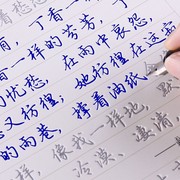 丁香一
一样的芬芳，
忧愁，在雨中哀怨
又彷徨；她彷徨在这寂
的雨巷，撑着油纸
像我一样地，默
冷漠、凄清，